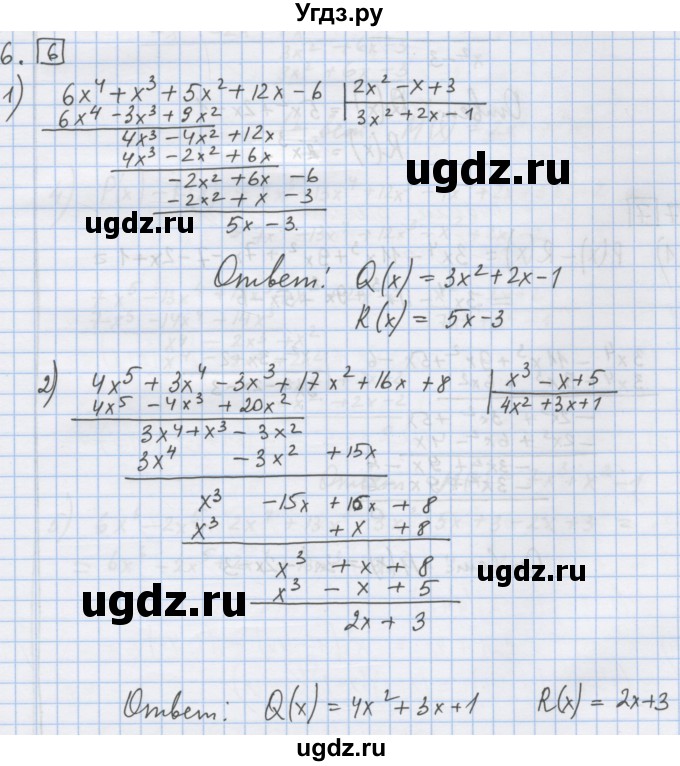 Угдз.ру
6. 6
1) 6x⁴ + x³ + 5x² + 12x - 6 | 2x² - x + 3
6x⁴ - 3x³ + 9x² 3x² + 2x - 1
4x³ - 4x² + 12x
4x³ - 2x² + 6x
-2x² + 6x - 6
-2x² + x - 3
ugdz.ru ugdz.ru
5x - 3.
Ответ: Q(x) = 3x² + 2x - 1
R(x) = 5x - 3
2) 4x⁵ + 3x⁴ - 3x³ + 17x² + 16x + 8 | x³ - x + 5
4x⁵ - 4x³ + 20x² 4x² + 3x + 1
3x⁴ + x³ - 3x²
3x⁴ - 3x² + 15x
x³ - 15x + 16x + 8
x³ + x + 8
x³ + x + 8
ugdz.ru
x³ - x + 5
ugdz.ru
2x + 3
Ответ: Q(x) = 4x² + 3x + 1 R(x) = 2x + 3
ugdz.ru